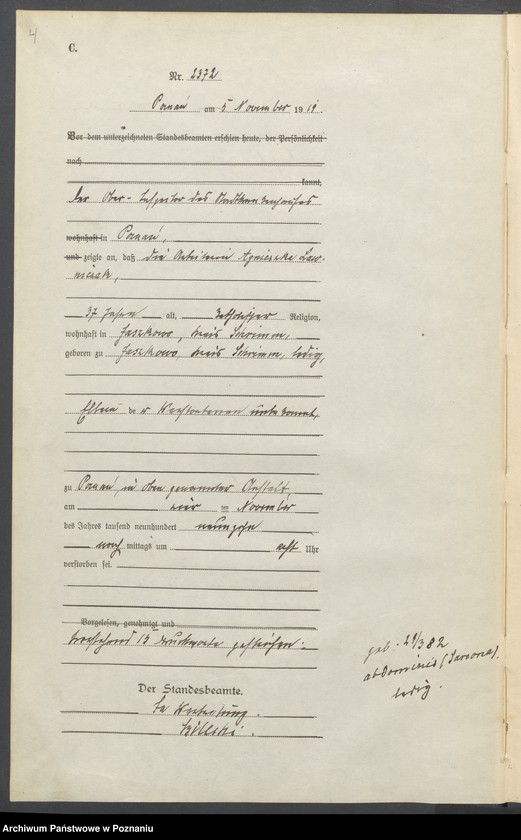 4
C.
Nr. 2372
Posen am 5 November 1919.
Vor dem unterzeichneten Standesbeamten erschien heute, der Persönlichkeit
nach
kannt,
Der Ober-Inspektor des Stadtkrankenhauses
wohnhaft in Posen,
und zeigte an, daß die Arbeiterin Agnieszka Law-
niczak,
37 Jahre alt, katholischer Religion,
wohnhaft in Jaszkowo, Kreis Schrimm,
geboren zu Jaszkowo, Kreis Schrimm, ledig,
Eltern der Verstorbenen unbekannt,
zu Posen, in oben genannter Anstalt,
am vier im November
des Jahres tausend neunhundert neunzehn
nach mittags um acht Uhr
verstorben sei.
Vorgelesen, genehmigt und
Vorstehend 13 Druckworte gestrichen.
Der Standesbeamte.
In Vertretung.
geb. 21/3 82
abdominis (Sarcoma).
ledig.
Archiwum Państwowe w Poznaniu